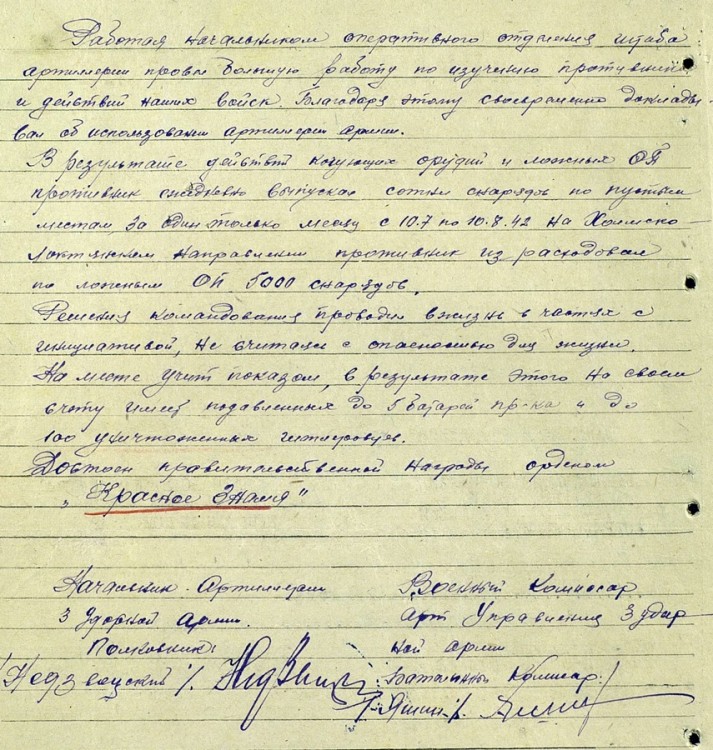 Работая начальником оперативного отделения штаба
артиллерии провел большую работу по изучению противника
и действий наших войск. Благодаря этому своевременно доклады-
вал об использовании артиллерии армии.
В результате действий кочующих орудий и ложных ОП
противник ежедневно выпускал сотни снарядов по пустым
местам, за один только месяц с 10.7 по 10.8.42 на Холмско-
Локтянском направлении противник израсходовал
по ложным ОП 5000 снарядов.
Решения командования проводил в жизнь в частях с
инициативой, не считаясь с опасностью для жизни.
На месте учит показом, в результате этого на своем
счету имеет подавленных до 5 батарей пр-ка и до
100 уничтоженных гитлеровцев.
Достоен правительственной награды орденом
„Красное Знамя"
Начальник Артиллерии
3 Ударной Армии
Полковник
Недзвецкий
Военный Комиссар
Арт Управления 3 удар-
ной армии
Батальонный Комиссар